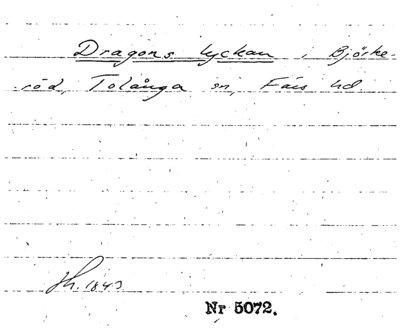 Dragons lyckan i Björke-
röd, Tolånga sn, Färs hd.
1843
Nr 5072.